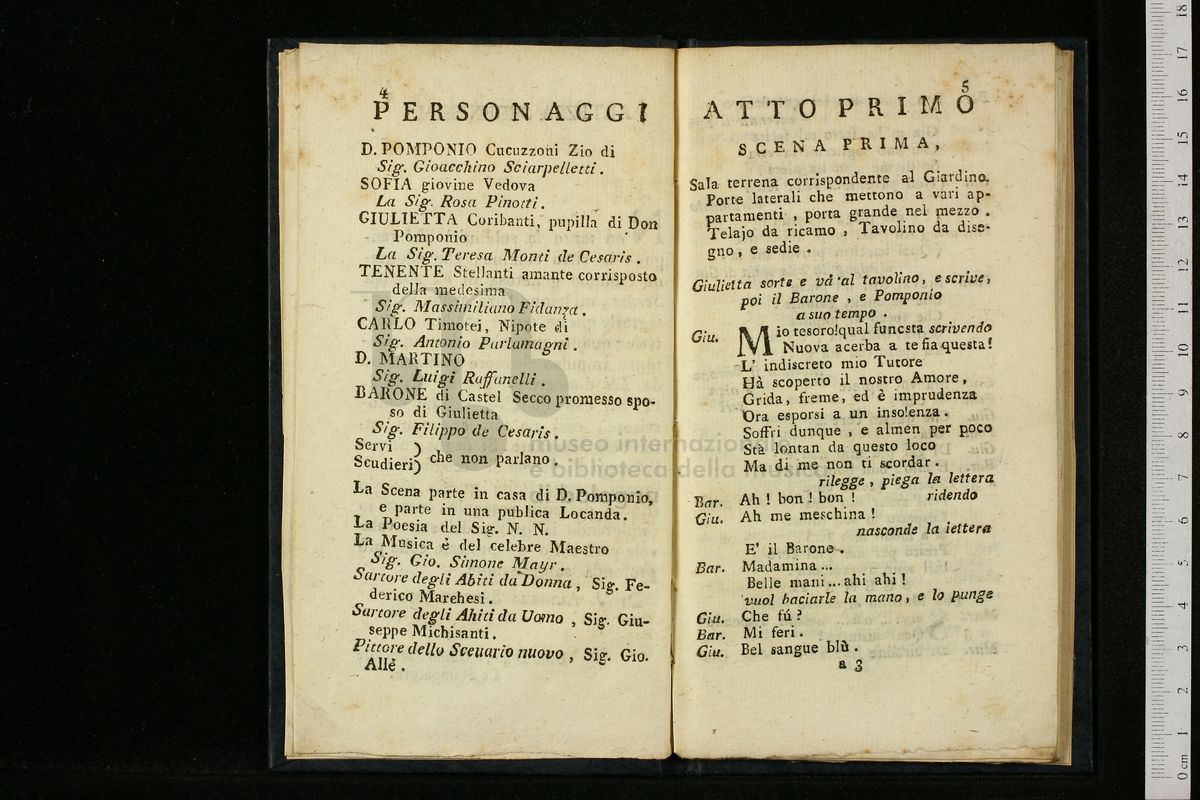 4
PERSONAGGI
D. POMPONIO Cucuzzoni Zio di
Sig. Gioacchino Sciarpelletti.
SOFIA giovine Vedova
La Sig. Rosa Pinotti.
GIULIETTA Coribanti, pupilla di Don
Pomponio
La Sig. Teresa Monti de Cesaris.
TENENTE Stellanti amante corrisposto
della medesima
Sig. Massimiliano Fidanza.
CARLO Timotei, Nipote di
Sig. Antonio Parlamagni.
D. MARTINO
Sig. Luigi Raffanelli.
BARONE di Castel Secco promesso spo-
so di Giulietta
Sig. Filippo de Cesaris.
Servi )
Scudieri) che non parlano.
La Scena parte in casa di D. Pomponio,
e parte in una publica Locanda.
La Poesia del Sig. N. N.
La Musica è del celebre Maestro
Sig. Gio. Simone Mayr.
Sartore degli Abiti da Donna, Sig. Fe-
derico Marehesi.
Sartore degli Ahiti da Uomo, Sig. Giu-
seppe Michisanti.
Pittore dello Sceuario nuovo, Sig. Gio.
Allè.
5
ATTO PRIMO
SCENA PRIMA,
Sala terrena corrispondente al Giardino.
Porte laterali che mettono a vari ap-
partamenti, porta grande nel mezzo.
Telajo da ricamo, Tavolino da dise-
gno, e sedie.
Giulietta sorte e và al tavolino, e scrive,
poi il Barone, e Pomponio
a suo tempo.
Giu. Mio tesoro! qual funesta scrivendo
Nuova acerba a te fia questa!
L' indiscreto mio Tutore
Hà scoperto il nostro Amore,
Grida, freme, ed è imprudenza
Ora esporsi a un insolenza.
Soffri dunque, e almen per poco
Stà lontan da questo loco
Ma di me non ti scordar.
rilegge, piega la lettera
Bar. Ah! bon! bon! ridendo
Giu. Ah me meschina!
nasconde la iettera
E' il Barone.
Bar. Madamina...
Belle mani... ahi ahi!
vuol baciarle la mano, e lo punge
Giu. Che fú?
Bar. Mi feri.
Giu. Bel sangue blù.
a 3
museo internazionale
e biblioteca della musica
0 cm 1 2 3 4 5 6 7 8 9 10 11 12 13 14 15 16 17 18